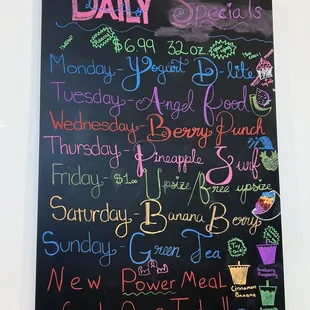 DAILY Specials
$6.99 32 oz.
Monday - Yogurt D-lite
Tuesday - Angel Food
Wednesday - Berry Punch
Thursday - Pineapple Surf
Friday - $1.00 Upsize/Free upsize
Saturday - Banana Berry
Sunday - Green Tea
Try One
New Power Meal
Cinnamon
Banana